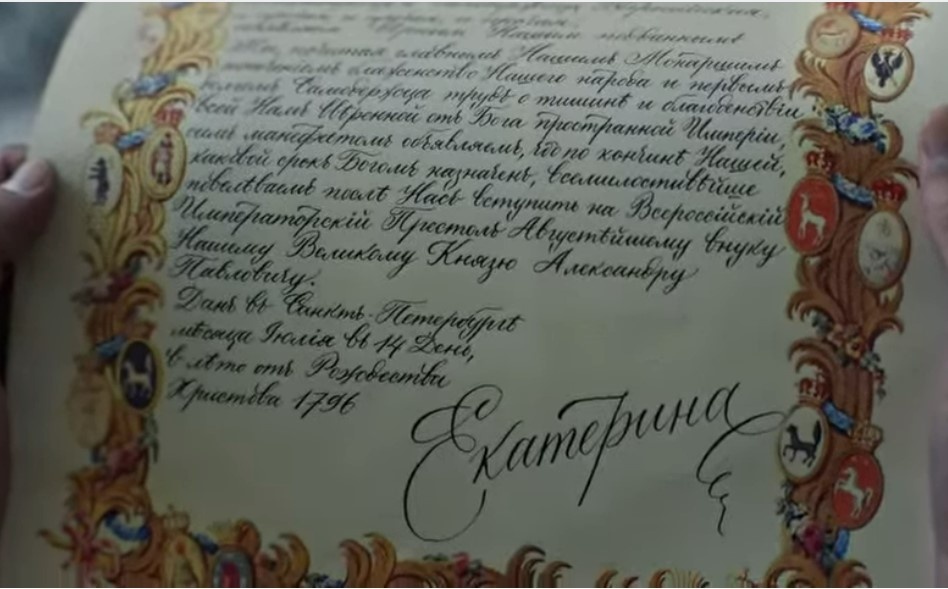 Мы, почитая главнымъ Нашимъ Монаршимъ
попеченіемъ блаженство Нашего народа и первымъ
Самодержца трудъ о тишинѣ и благоденствіи
всей Намъ ввѣренной отъ Бога пространной Имперіи,
симъ манифестомъ объявляемъ, что по кончинѣ Нашей,
каковой срокъ Богомъ назначенъ, всемилостивѣйше
повелѣваемъ послѣ Насъ вступить на Всероссійскій
Императорскій Престолъ Августѣйшему внуку
Нашему Великому Князю Александру
Павловичу.
Данъ въ Санктъ-Петербургѣ
мѣсяца Іюлія въ 14 День,
в лѣто отъ Рождества
Христова 1796
Екатерина